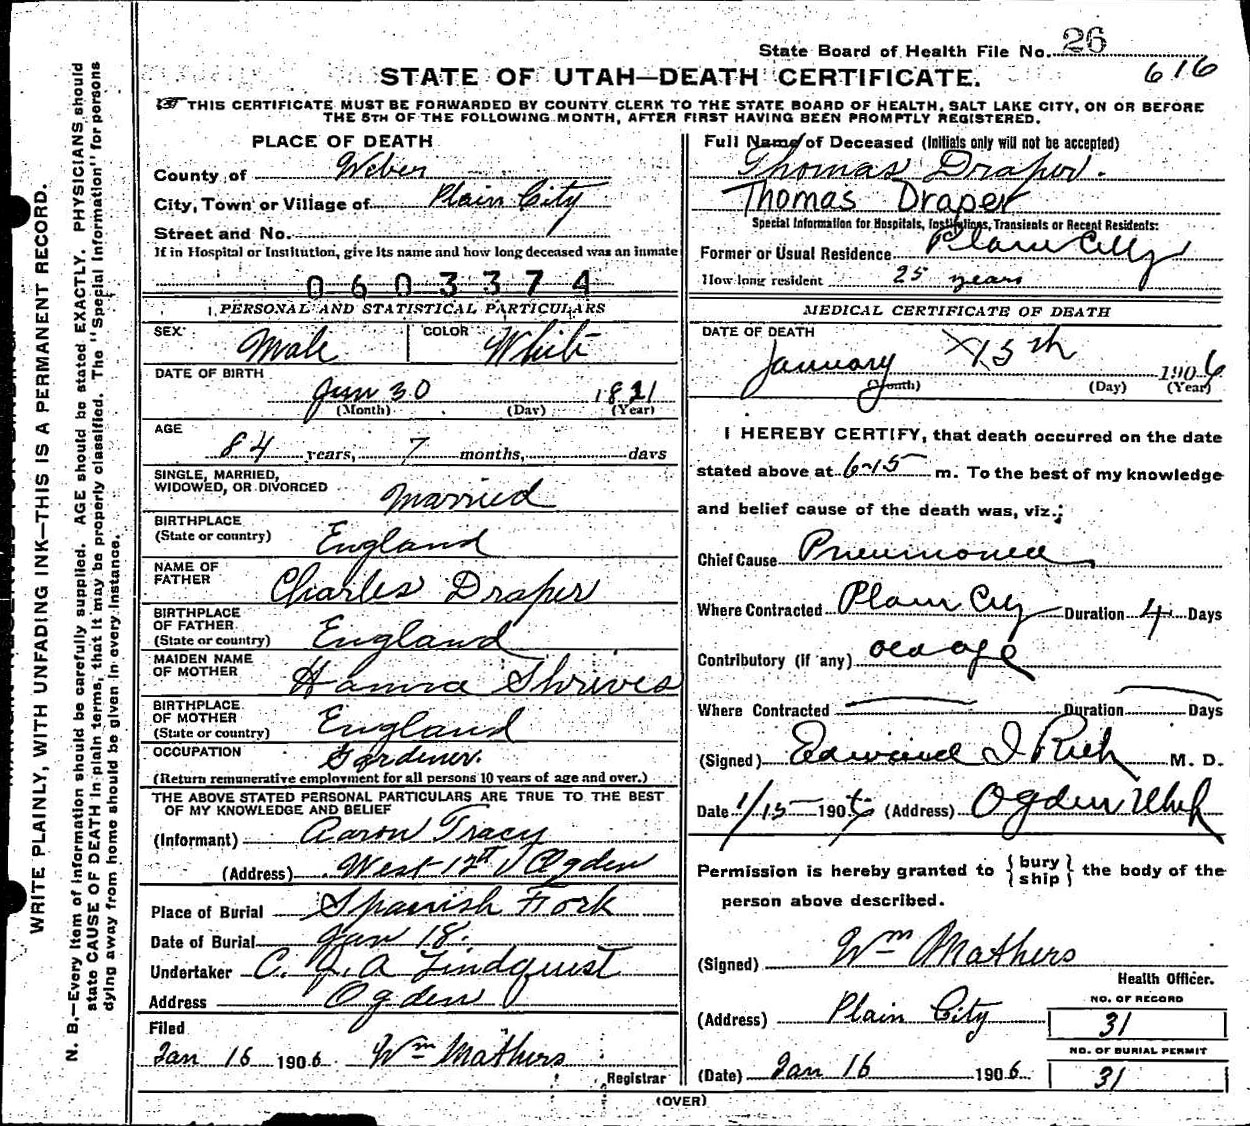 State Board of Health File No. 26
616
STATE OF UTAH—DEATH CERTIFICATE.
THIS CERTIFICATE MUST BE FORWARDED BY COUNTY CLERK TO THE STATE BOARD OF HEALTH, SALT LAKE CITY, ON OR BEFORE
THE 5TH OF THE FOLLOWING MONTH, AFTER FIRST HAVING BEEN PROMPTLY REGISTERED.
WRITE PLAINLY, WITH UNFADING INK—THIS IS A PERMANENT RECORD.
N. B.—Every item of information should be carefully supplied. AGE should be stated EXACTLY. PHYSICIANS should
state CAUSE OF DEATH in plain terms, that it may be properly classified. The "Special Information" for persons
dying away from home should be given in every instance.
PLACE OF DEATH
County of Weber
City, Town or Village of Plain City
Street and No.
If in Hospital or Institution, give its name and how long deceased was an inmate
0603374
PERSONAL AND STATISTICAL PARTICULARS
SEX Male COLOR White
DATE OF BIRTH
Jun 30 1821
(Month) (Day) (Year)
AGE
84 years, 7 months, days
SINGLE, MARRIED,
WIDOWED, OR DIVORCED Married
BIRTHPLACE
(State or country) England
NAME OF
FATHER Charles Draper
BIRTHPLACE
OF FATHER
(State or country) England
MAIDEN NAME
OF MOTHER Hanna Shrives
BIRTHPLACE
OF MOTHER
(State or country) England
OCCUPATION Gardener.
(Return remunerative employment for all persons 10 years of age and over.)
THE ABOVE STATED PERSONAL PARTICULARS ARE TRUE TO THE BEST
OF MY KNOWLEDGE AND BELIEF
(Informant) Aaron Tracy
(Address) West 12th Ogden
Place of Burial Spanish Fork
Date of Burial Jan 18.
Undertaker C. J. A Lindquist
Address Ogden
Filed
Jan 16 1906 Wm Mathers
Registrar
Full Name of Deceased (Initials only will not be accepted)
Thomas Draper.
Thomas Draper
Special Information for Hospitals, Institutions, Transients or Recent Residents:
Former or Usual Residence Plain City
How long resident 25 years
MEDICAL CERTIFICATE OF DEATH
DATE OF DEATH
January 15th 1906
(Month) (Day) (Year)
I HEREBY CERTIFY, that death occurred on the date
stated above at 6-15 m. To the best of my knowledge
and belief cause of the death was, viz.:
Chief Cause Pneumonea
Where Contracted Plain City Duration 4 Days
Contributory (if any) old age
Where Contracted Duration Days
(Signed) Edward I Rich M. D.
Date 1/15 1906 (Address) Ogden Utah
Permission is hereby granted to { bury ship } the body of the
person above described.
(Signed) Wm Mathers
Health Officer.
(Address) Plain City
NO. OF RECORD
31
NO. OF BURIAL PERMIT
31
(Date) Jan 16 1906
(OVER)